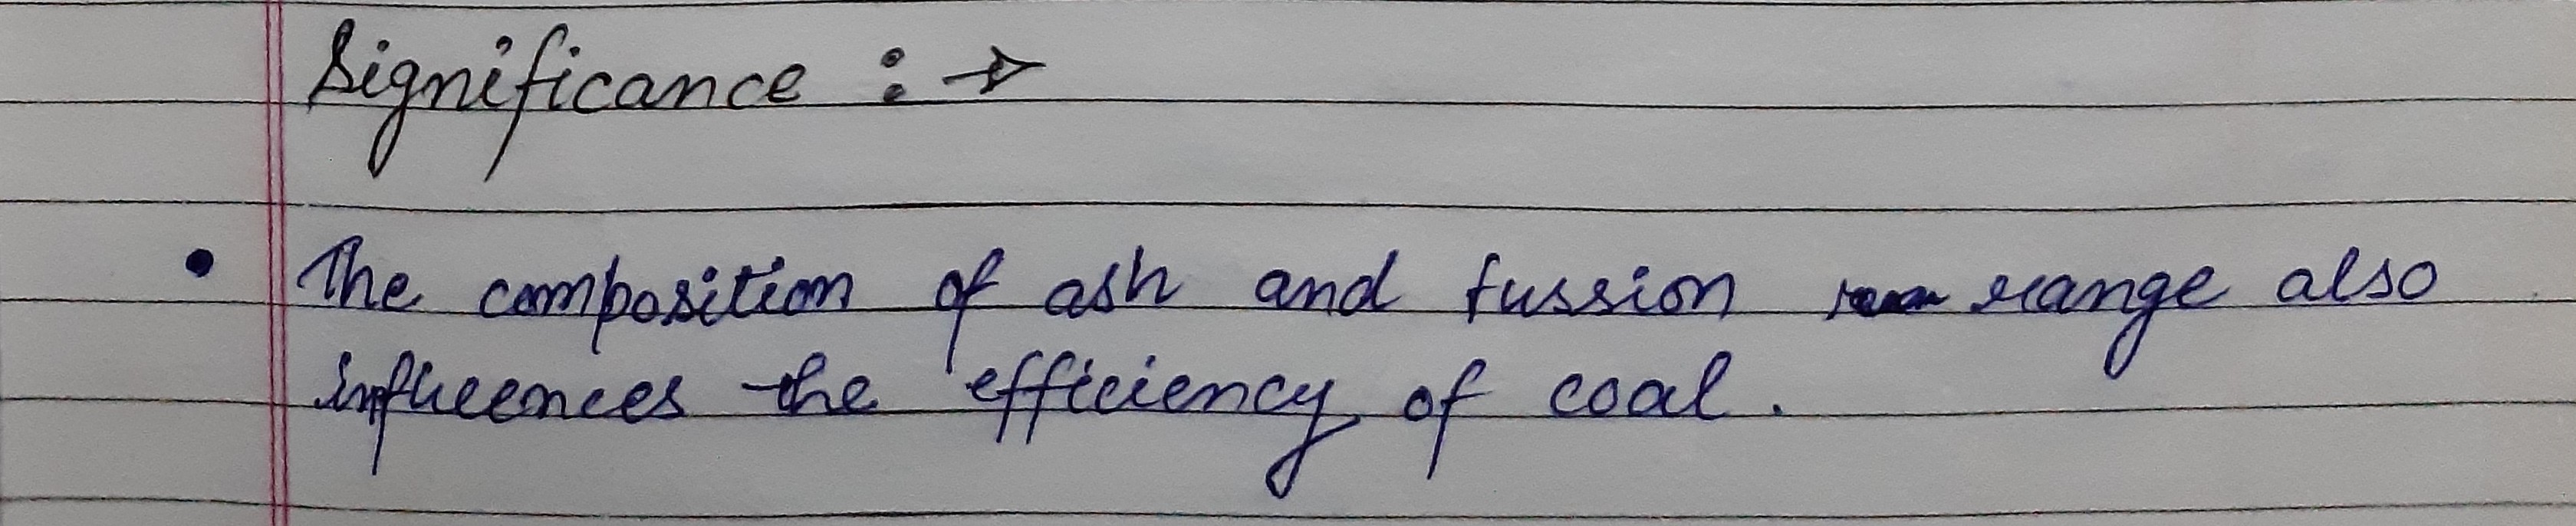 Significance : →
• The composition of ash and fussion range also
influences the efficiency of coal.